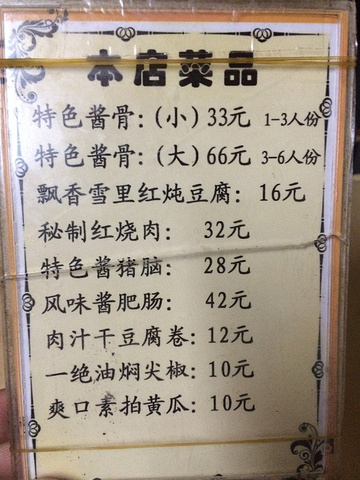 本店菜品
特色酱骨：(小) 33元 1-3人份
特色酱骨：(大) 66元 3-6人份
飘香雪里红炖豆腐：16元
秘制红烧肉： 32元
特色酱猪脑： 28元
风味酱肥肠： 42元
肉汁干豆腐卷：12元
一绝油焖尖椒：10元
爽口素拍黄瓜：10元